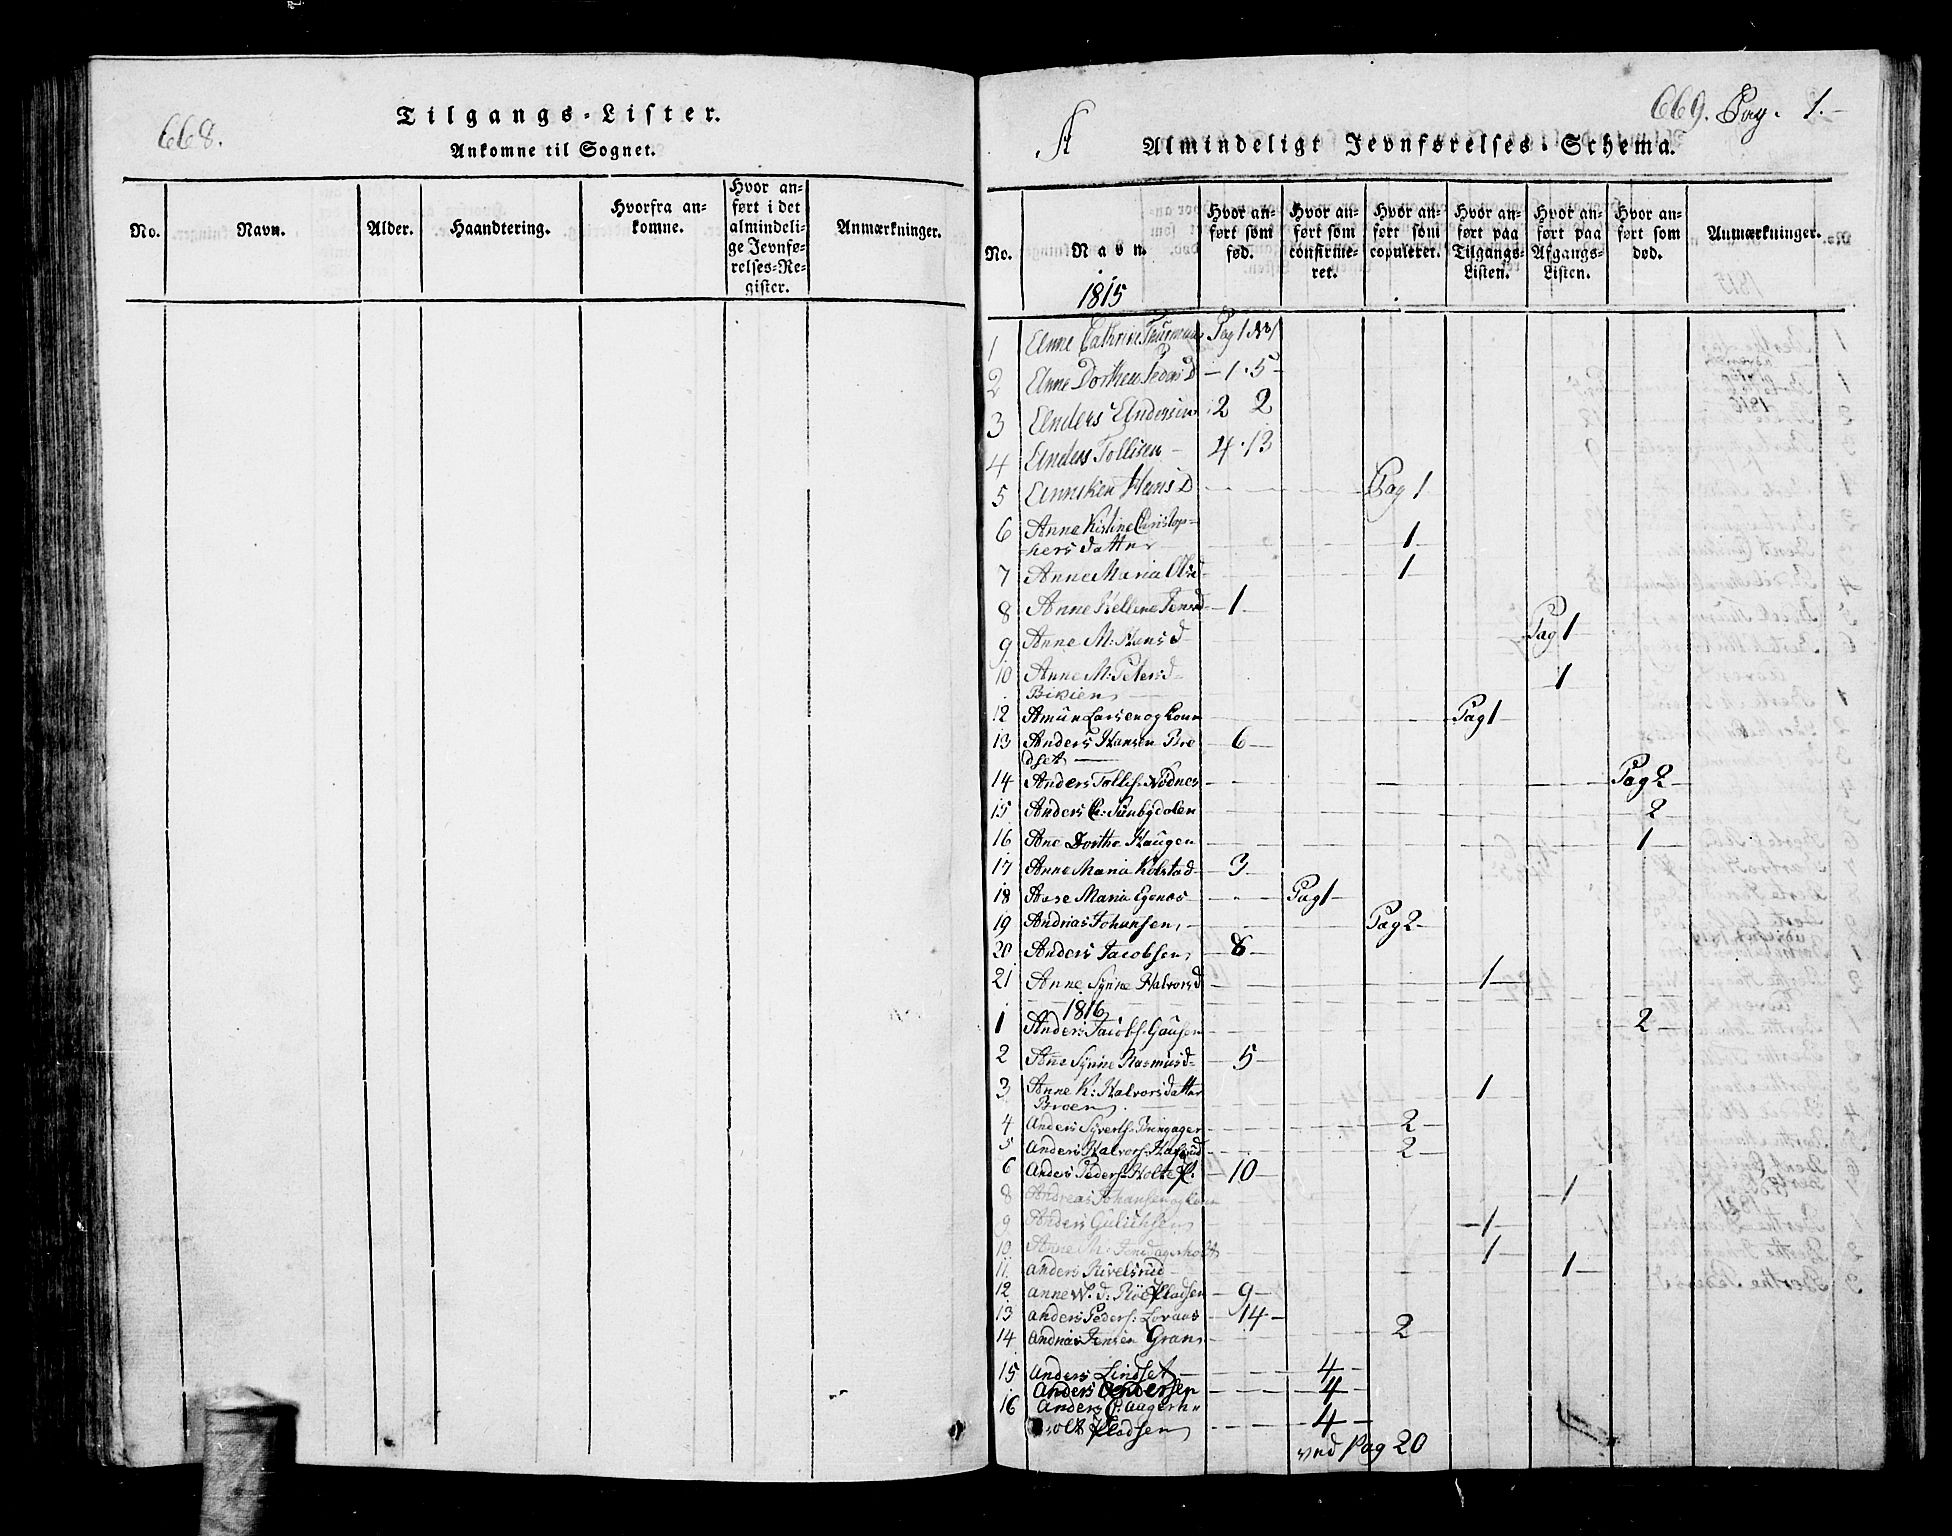 668.
Tilgangs-Lister.
Ankomne til Sognet.
No.
Navn.
Alder.
Haandtering.
Hvorfra an-
komne.
Hvor an-
ført i det
almindeli-
ge Jevnfø-
relses-Re-
gister.
Anmærkninger.
669. Pag. 1.-
A
Almindeligt Jevnførelses-Schema.
No.
Navn.
1815
Hvor an-
ført som
fød.
Hvor an-
ført som
confirme-
ret.
Hvor an-
ført som
copuleret.
Hvor an-
ført paa
Tilgangs-
Listen.
Hvor an-
ført paa
Afgangs-
Listen.
Hvor an-
ført som
død.
Anmærkninger.
1 Anne Cathrine Pag 1
2 Anne Dorthea Peders D - 1 . 5 -
3 Anders Andersen 2 2
4 Anders Tollisen - 4 . 13
5 Anniken Hans D Pag 1
6 Anne Kistine Christop-
hers datter 1
7 Anne Maria Olsd 1
8 Anne Hellene Jensd - 1 -
9 Anne M: Hans d Pag 1
10 Anne M: Peters d - 1
12 Amun Larsen og Kone Pag 1
13 Anders Hansen Bre - 6 -
dset
14 Anders Tollefs: Nødnes Pag 2
15 Anders C: Sunbydalen 2
16 Ane Dorthe Haugen 1
17 Anne Maria Kolstad - 3 -
18 Aase Maria Egenes Pag 1
19 Andrias Johansen, Pag 2
20 Anders Jacobsen, - 8 -
21 Anne Synne Halvorsd 1
1816
1 Anders Jacobs: 2
2 Ane Synne Rasmusd - 5 -
3 Anne K: Halvorsdatter 1
Broen
4 Anders Syverts: 2
5 Anders Halvors: 2
6 Anders Peders: Holte - 10 -
8 Andreas Johansen og Kone 1
9 Anders Gulichsen - 1
10 Anne M: 1
11. Anders Rivelsrud 1
12 - 9 -
13 Anders Peders: - 14 -
14 Andrias Jensen Gran 2
15 Anders Lindset 4
Anders Andersen 4
16 Anders C: Aagerh-
holt Pladsen 4 -
ved Pag 20